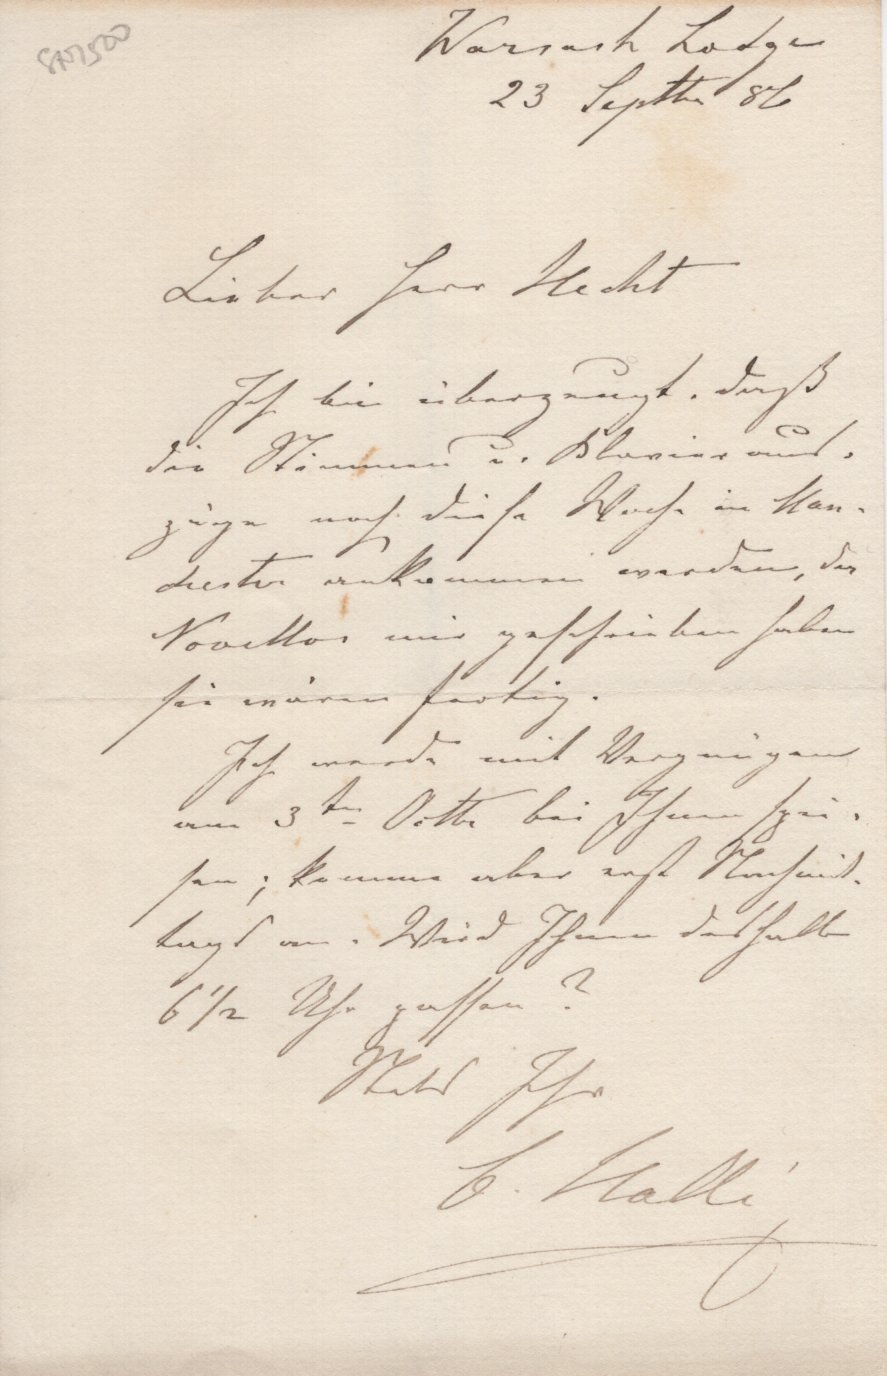 Warsash Lodge
23 Septbr 86
Lieber Herr Hecht
Ich bin überzeugt, daß
die Stimmen u. Klavieraus-
züge noch diese Woche in Man-
chester ankommen werden, da
Novellos mir geschrieben haben
sie wären fertig.
Ich werde mit Vergnügen
am 3ten Octbr bei Ihnen spei-
sen; komme aber erst Nachmit-
tags an. Wird Ihnen deshalb
6 1/2 Uhr passen?
Stets Ihr
C. Hallé